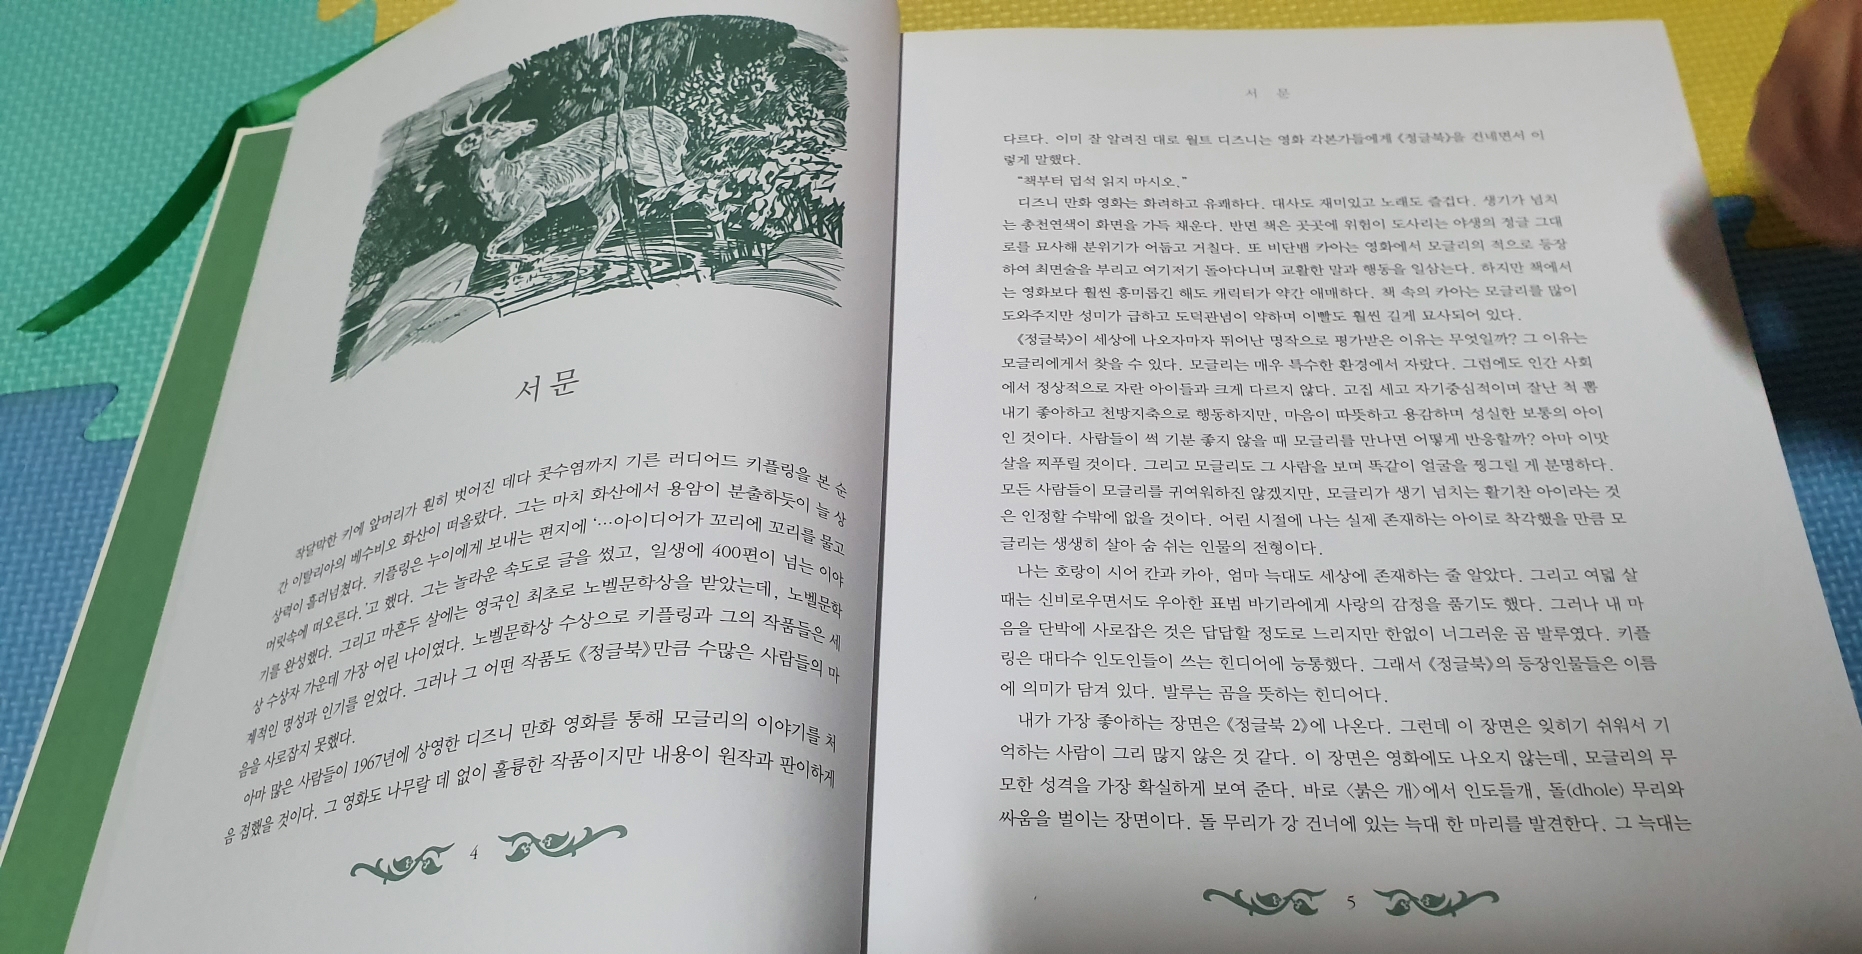 서문
작달막한 키에 앞머리가 훤히 벗어진 데다 콧수염까지 기른 러디어드 키플링을 본 순
간 이탈리아의 베수비오 화산이 떠올랐다. 그는 마치 화산에서 용암이 분출하듯이 늘 상
상력이 흘러넘쳤다. 키플링은 누이에게 보내는 편지에 ‘…아이디어가 꼬리에 꼬리를 물고
머릿속에 떠오른다.’고 했다. 그는 놀라운 속도로 글을 썼고, 일생에 400편이 넘는 이야
기를 완성했다. 그리고 마흔두 살에는 영국인 최초로 노벨문학상을 받았는데, 노벨문학
상 수상자 가운데 가장 어린 나이였다. 노벨문학상 수상으로 키플링과 그의 작품들은 세
계적인 명성과 인기를 얻었다. 그러나 그 어떤 작품도 《정글북》만큼 수많은 사람들의 마
음을 사로잡지 못했다.
아마 많은 사람들이 1967년에 상영한 디즈니 만화 영화를 통해 모글리의 이야기를 처
음 접했을 것이다. 그 영화도 나무랄 데 없이 훌륭한 작품이지만 내용이 원작과 판이하게
4
서 문
다르다. 이미 잘 알려진 대로 월트 디즈니는 영화 각본가들에게 《정글북》을 건네면서 이
렇게 말했다.
“책부터 덥석 읽지 마시오.”
디즈니 만화 영화는 화려하고 유쾌하다. 대사도 재미있고 노래도 즐겁다. 생기가 넘치
는 총천연색이 화면을 가득 채운다. 반면 책은 곳곳에 위험이 도사리는 야생의 정글 그대
로를 묘사해 분위기가 어둡고 거칠다. 또 비단뱀 카아는 영화에서 모글리의 적으로 등장
하여 최면술을 부리고 여기저기 돌아다니며 교활한 말과 행동을 일삼는다. 하지만 책에서
는 영화보다 훨씬 흥미롭긴 해도 캐릭터가 약간 애매하다. 책 속의 카아는 모글리를 많이
도와주지만 성미가 급하고 도덕관념이 약하며 이빨도 훨씬 길게 묘사되어 있다.
《정글북》이 세상에 나오자마자 뛰어난 명작으로 평가받은 이유는 무엇일까? 그 이유는
모글리에게서 찾을 수 있다. 모글리는 매우 특수한 환경에서 자랐다. 그럼에도 인간 사회
에서 정상적으로 자란 아이들과 크게 다르지 않다. 고집 세고 자기중심적이며 잘난 척 뽐
내기 좋아하고 천방지축으로 행동하지만, 마음이 따뜻하고 용감하며 성실한 보통의 아이
인 것이다. 사람들이 썩 기분 좋지 않을 때 모글리를 만나면 어떻게 반응할까? 아마 이맛
살을 찌푸릴 것이다. 그리고 모글리도 그 사람을 보며 똑같이 얼굴을 찡그릴 게 분명하다.
모든 사람들이 모글리를 귀여워하진 않겠지만, 모글리가 생기 넘치는 활기찬 아이라는 것
은 인정할 수밖에 없을 것이다. 어린 시절에 나는 실제 존재하는 아이로 착각했을 만큼 모
글리는 생생히 살아 숨 쉬는 인물의 전형이다.
나는 호랑이 시어 칸과 카아, 엄마 늑대도 세상에 존재하는 줄 알았다. 그리고 여덟 살
때는 신비로우면서도 우아한 표범 바기라에게 사랑의 감정을 품기도 했다. 그러나 내 마
음을 단박에 사로잡은 것은 답답할 정도로 느리지만 한없이 너그러운 곰 발루였다. 키플
링은 대다수 인도인들이 쓰는 힌디어에 능통했다. 그래서 《정글북》의 등장인물들은 이름
에 의미가 담겨 있다. 발루는 곰을 뜻하는 힌디어다.
내가 가장 좋아하는 장면은 《정글북 2》에 나온다. 그런데 이 장면은 잊히기 쉬워서 기
억하는 사람이 그리 많지 않은 것 같다. 이 장면은 영화에도 나오지 않는데, 모글리의 무
모한 성격을 가장 확실하게 보여 준다. 바로 〈붉은 개〉에서 인도들개, 돌(dhole) 무리와
싸움을 벌이는 장면이다. 돌 무리가 강 건너에 있는 늑대 한 마리를 발견한다. 그 늑대는
5